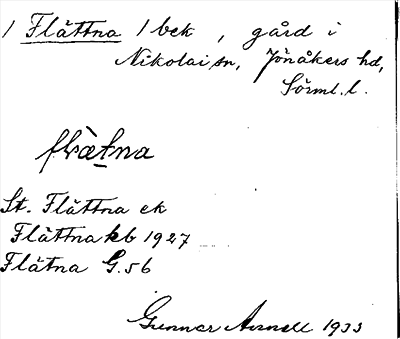 1 Flättna 1 bek, gård i
Nikolai sn, Jönåkers hd,
Sörml. l.
flætna
St. Flättna ek
Flättna kb 1927
Flätna G. 56
Gunnar 1933